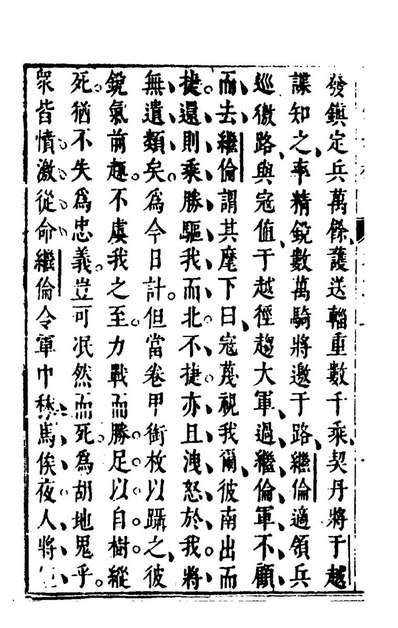 發鎮定兵萬餘護送輜重數千乘契丹將于越
諜知之率精銳數萬騎將邀于路繼倫適領兵
巡徼路與寇值于越徑趨大軍過繼倫軍不顧
而去繼倫謂其麾下曰寇蔑視我爾彼南出而
捷還則乘勝驅我而北不捷亦且洩怒於我將
無遺類矣為今日計但當卷甲銜枚以躡之彼
銳氣前趨不虞我之至力戰而勝足以自樹縱
死猶不失為忠義豈可泯然而死為胡地鬼乎
眾皆憤激從命繼倫令軍中秣馬俟夜人將